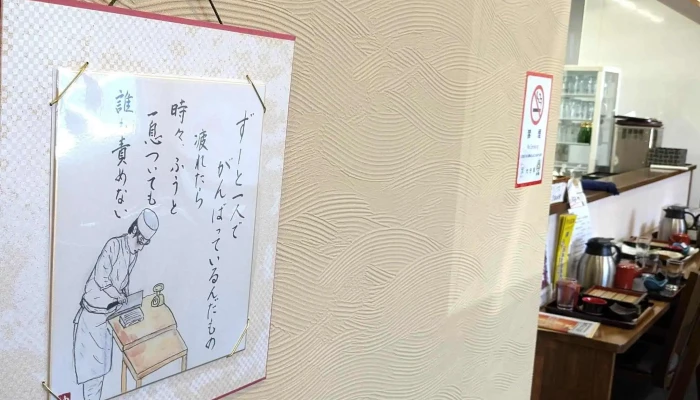 ずーと一人で
がんばっているんだもの
疲れたら
時々、ふうと
一息ついても
誰も責めない
禁煙